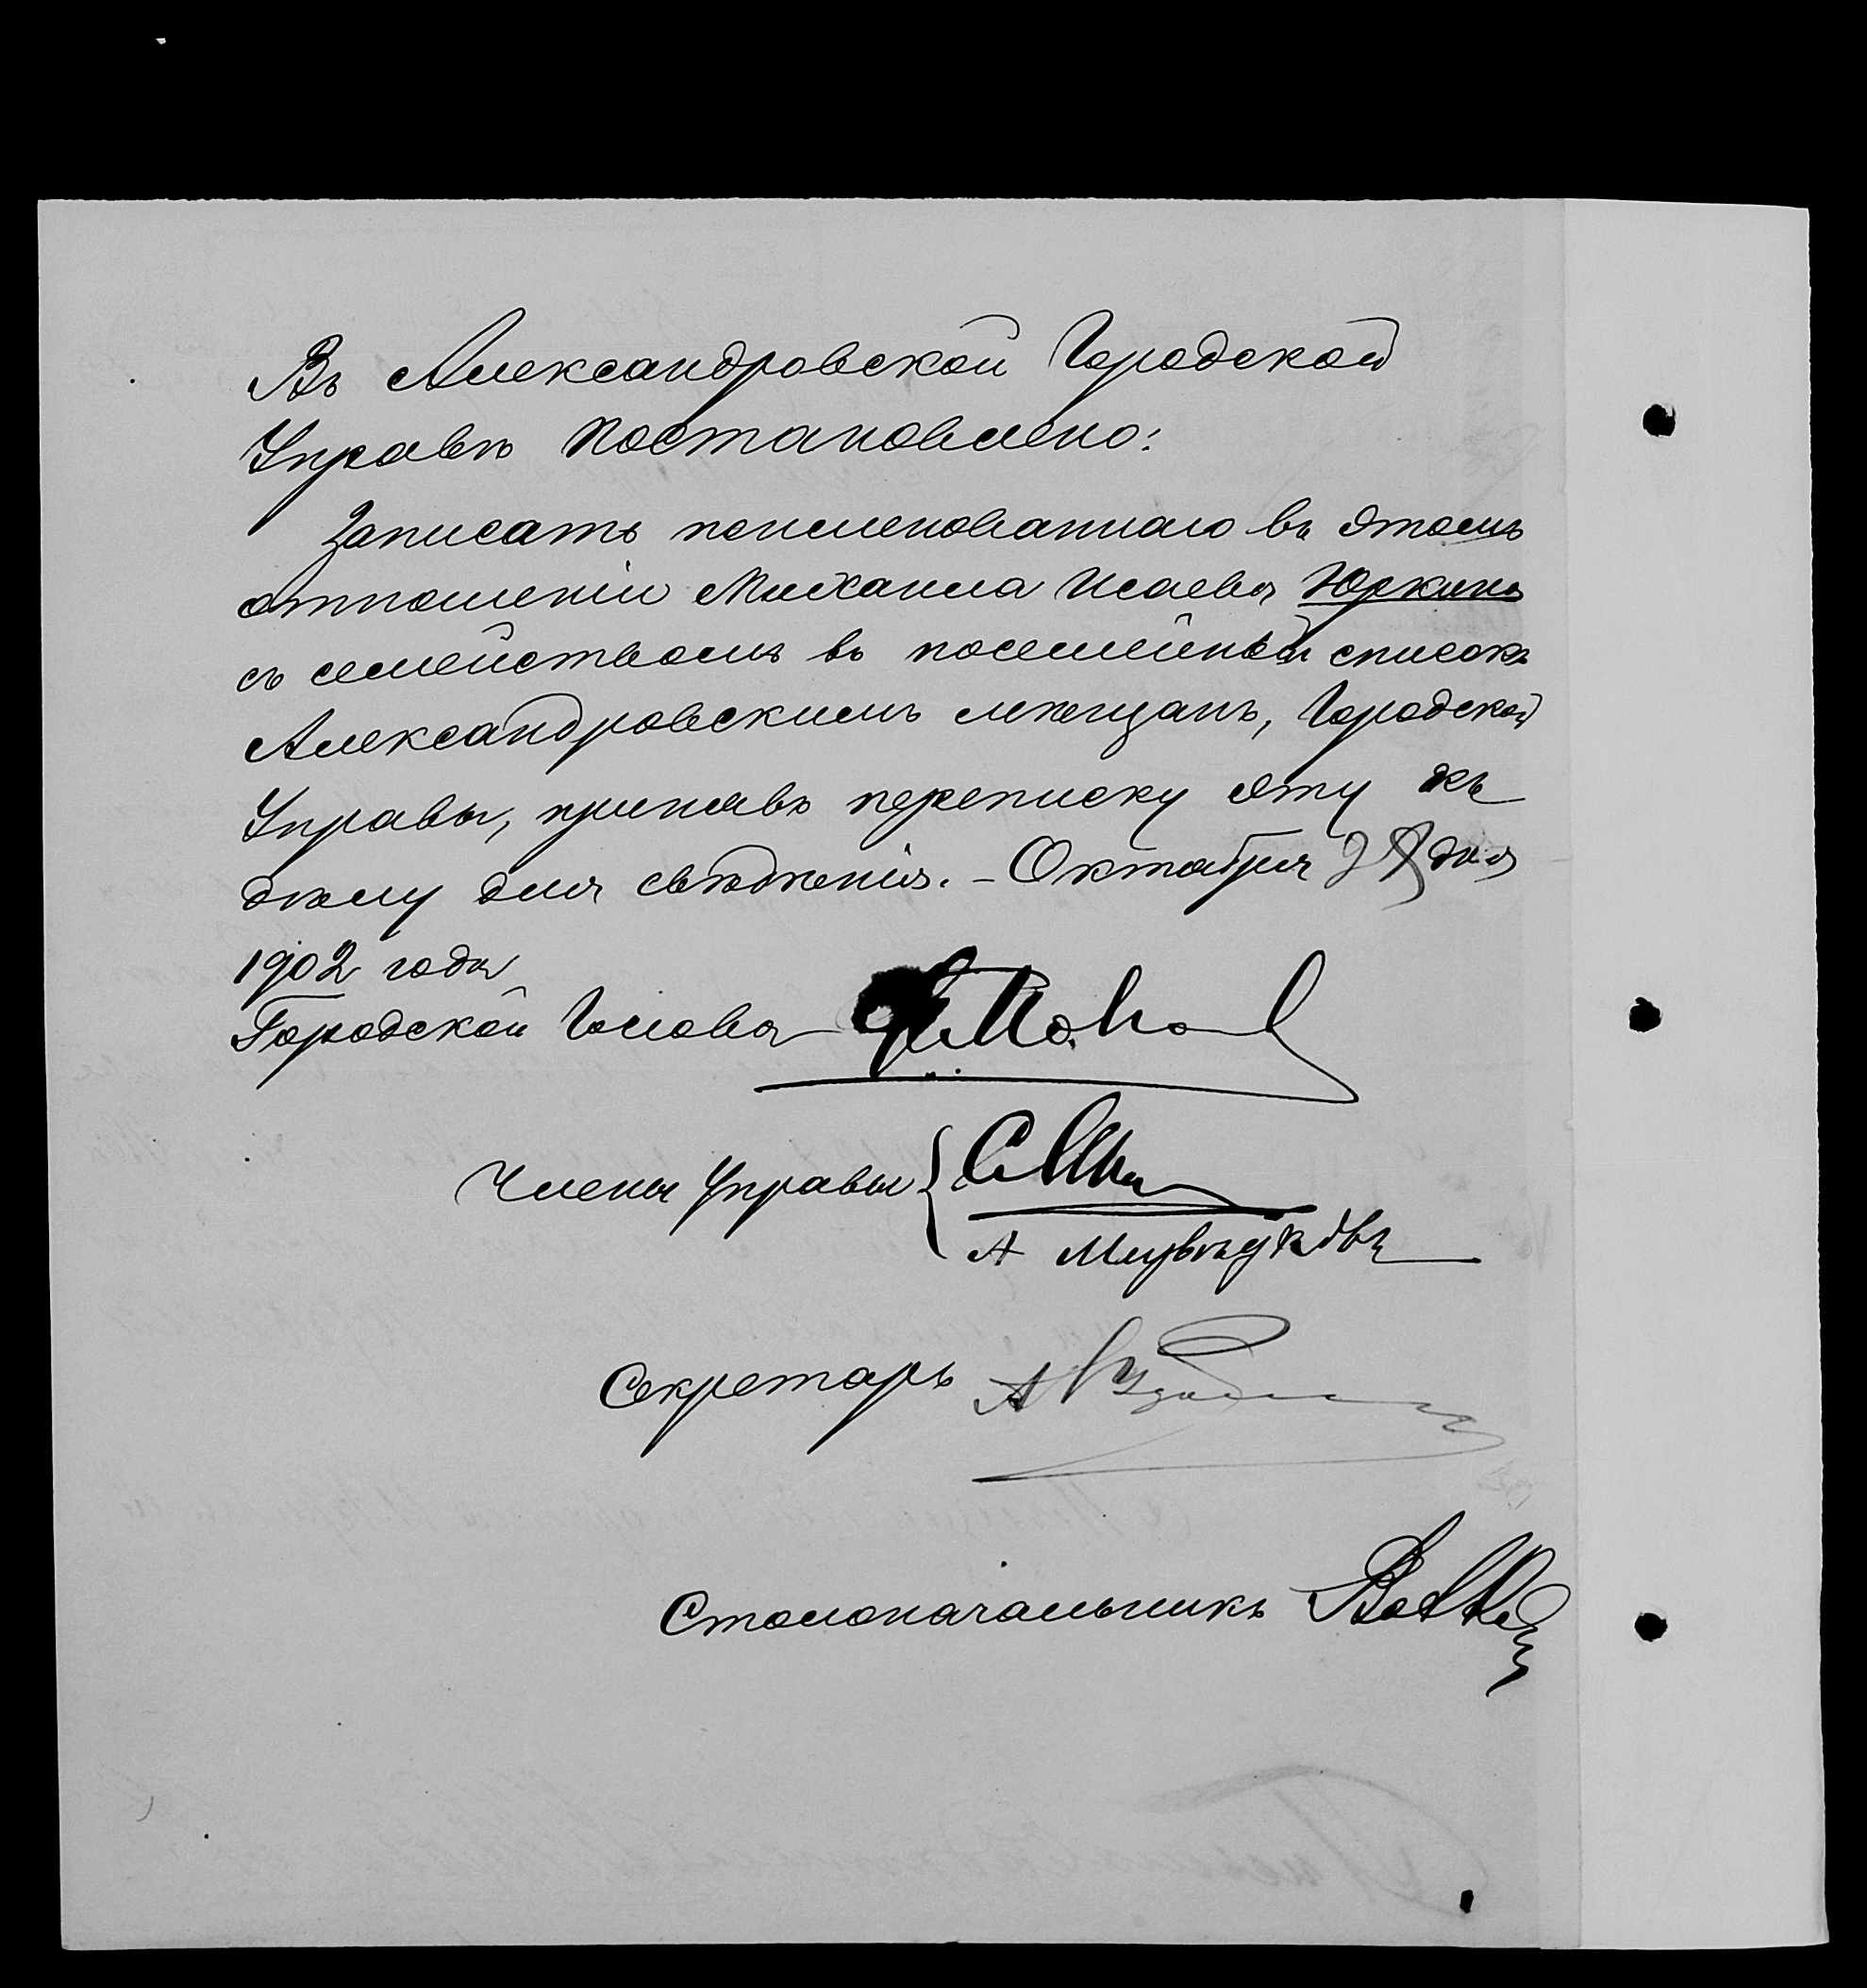 Въ Александровской Городской
Управѣ постановлено:
Записать поименованнаго въ этомъ
отношеніи Михаила Исаева Юркина
съ семействомъ въ посемейный списокъ
Александровскимъ мѣщанъ, Городской
Управы, пріинявъ переписку эту къ
дѣлу для свѣдѣнія. – Октября 28 дня
1902 года
Городской Голова
Члены Управы
А
Секретарь А
Столоначальникъ